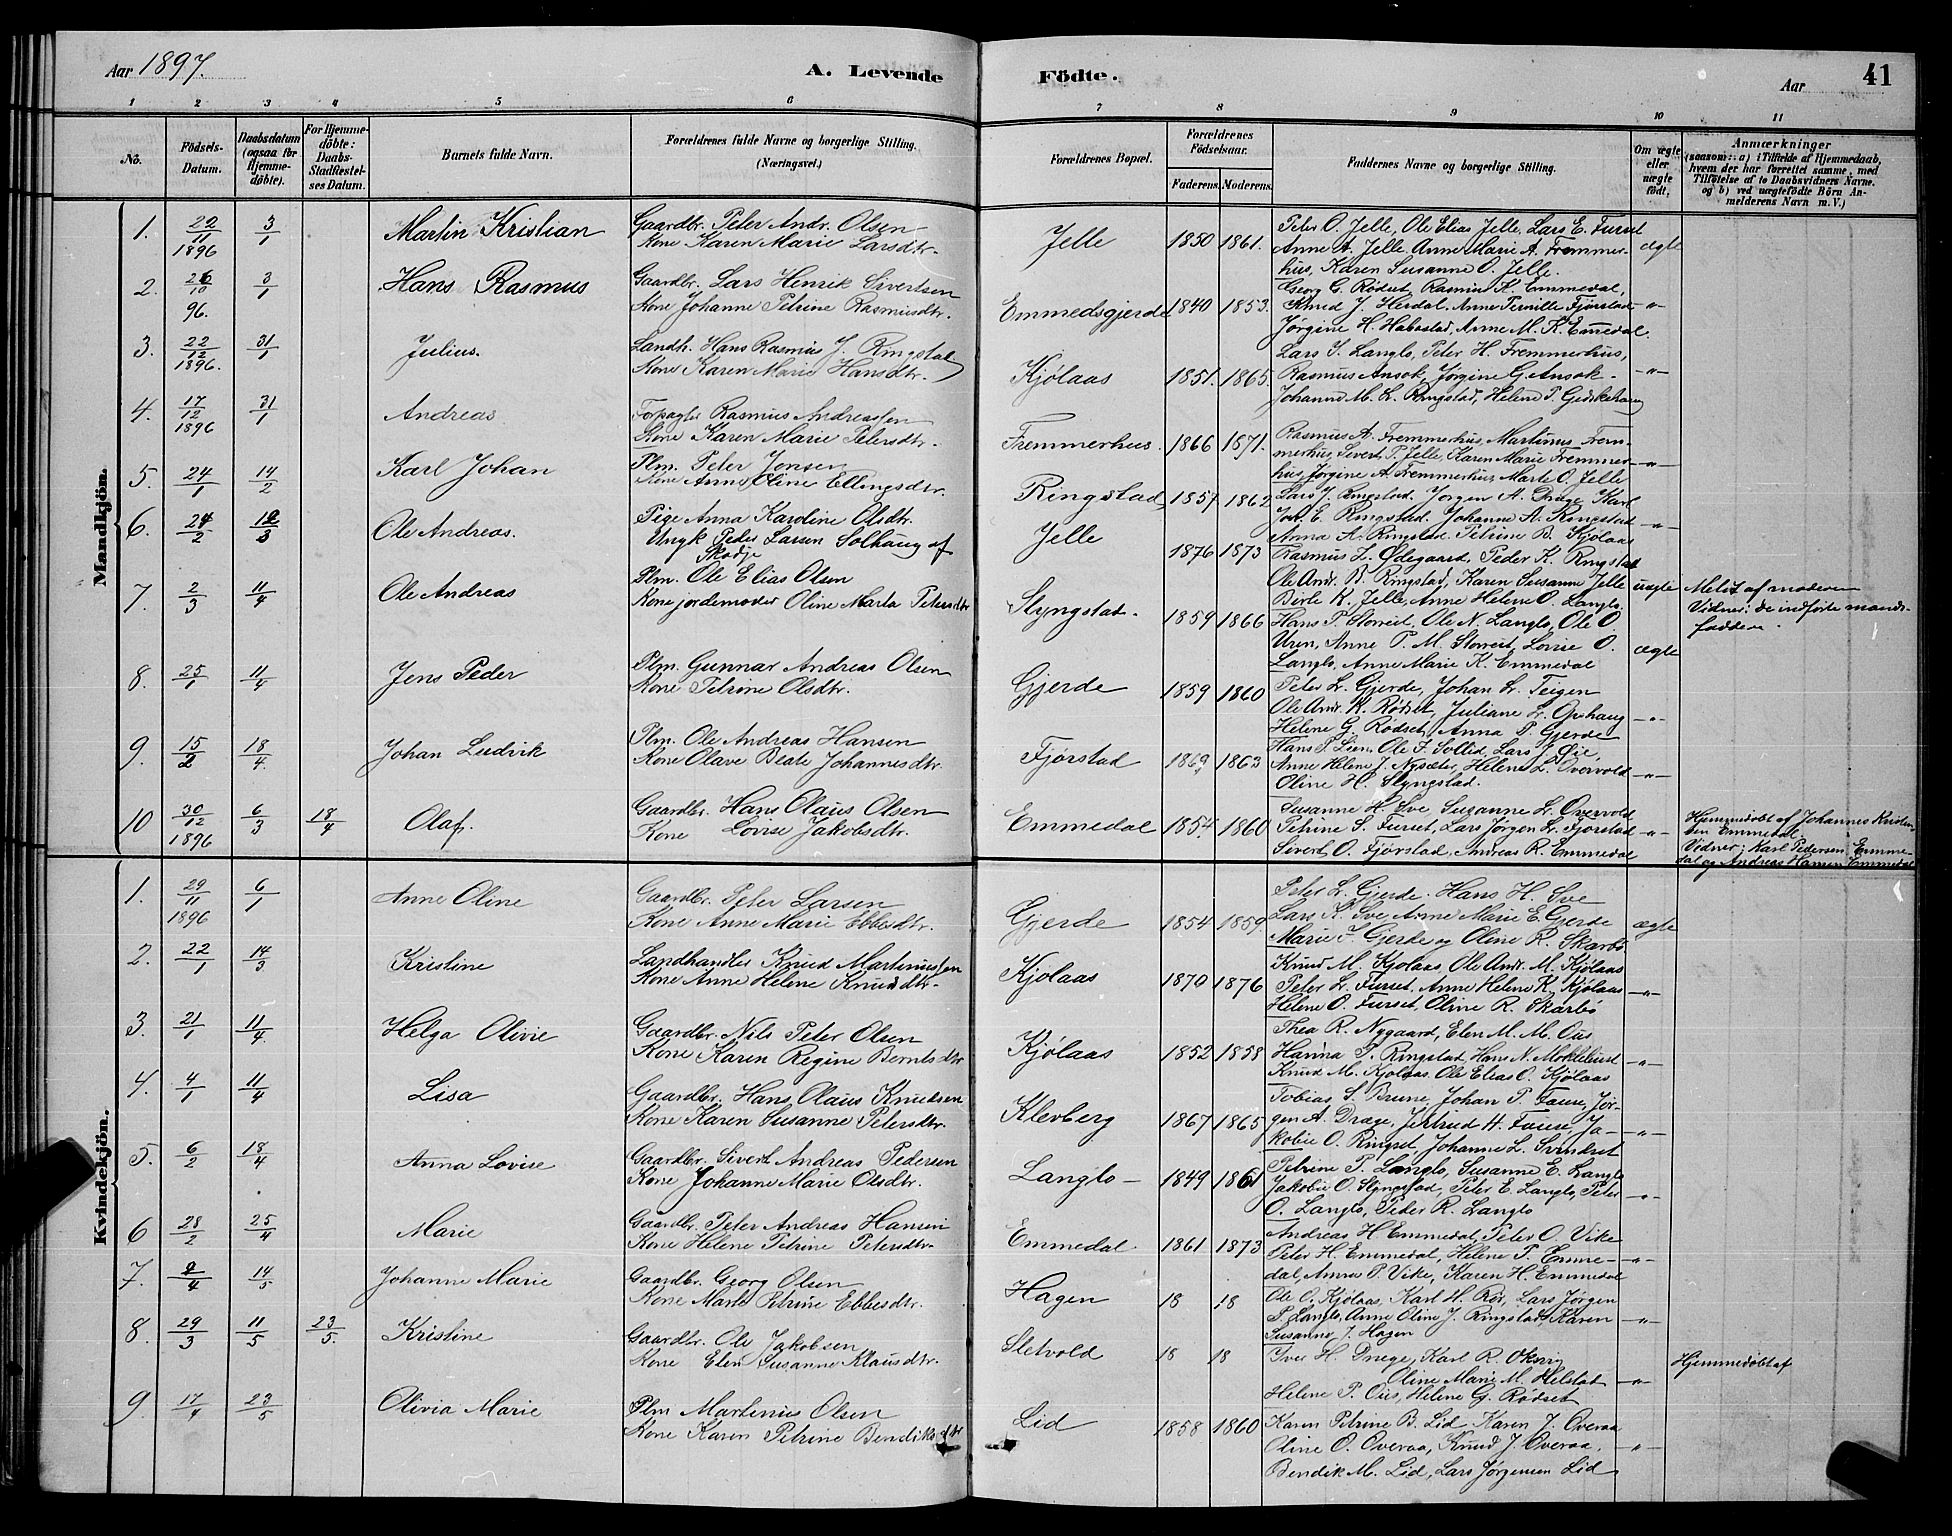 Aar 1897.
A. Levende
Fødte.
Aar
41
1 2 3 4 5 6 7 8 9 10 11
No.
Födsels-
Datum.
Daabsdatum
(ogsaa for
Hjemme-
döbte).
For Hjemme-
döbte:
Daabs-
Stadfæstel-
ses Datum.
Barnets fulde Navn.
Forældrenes fulde Navne og borgerlige Stilling.
(Næringsvei.)
Forældrenes Bopæl.
Forældrenes
Födselsaar.
Faderens. Moderens.
Faddernes Navne og borgerlige Stilling.
Om ægte
eller
uægte
födt.
Anmærkninger
(saasom: a) i Tilfælde af Hjemmedaab,
hvem der har forrettet samme, med
Tilföielse af to Daabsvidners Navne,
og b) ved uægtefödte Börn An-
melderens Navn m. V.)
Mandkjön.
1. 22/11 1896 3/1 Martin Kristian
Gaardbr. Peter Andr. Olsen
Kone Karen Marie Larsdtr.
Jelle 1850 1861.
Peter O. Jelle, Ole Elias Jelle, Lars E. Furset
Anne A. Jelle Anne Marie A. Fremmer-
hus, Karen Susanne O. Jelle.
ægte
2. 26/10 96. 3/1 Hans Rasmus
Gaardbr. Lars Henrik Sivertsen
Kone Johanne Petrine Rasmusdtr.
Emmedsgjerde 1840 1853.
Georg C. Rødset, Rasmus K. Emmedal,
Knud J. Herdal, Anne Pernille Fjørstad
Jørgine H. Habostad, Anne M. K. Emedal.
-"-
3. 22/12 1896. 31/1 Julius.
Landh. Hans Rasmus J. Ringstad
Kone Karen Marie Hansdtr.
Kjølaas 1851. 1865.
Lars J. Langlo, Peter H. Fremmerhus,
Rasmus Ansok, Jørgine G. Ansok-
Johanne M. L. Ringstad, Helene P.
-"-
4. 17/12 1896 31/1 Andreas
Forpagter Rasmus Andreassen
Kone Karen Marie Petersdtr.
Fremmerhus. 1866 1871.
Rasmus A. Fremmerhus, Martinus Frem-
merhus, Sivert P. Jelle, Karen Marie Fremmer-
hus, Jørgine A. Fremmerhus, Marte O. Jelle
-"-
5. 24/1 14/2 Karl Johan
Plm. Peter Jonsen
Kone Anne Oline Ellingsdtr.
Ringstad 1857 1862
Lars J. Ringstad, Jørgen A. Drage, Karl
Joh. E. Ringstad. Johanne A. Ringstad
Anna A. Ringstad. Petrine B. Kjølaas
-"-
6. 24/2 12/3 Ole Andreas.
Pige Anna Karoline Olsdtr.
Ungk Peder Larsen Solhaug af
Skodje
Jelle 1876 1873
Rasmus L. Ødegaard, Peder K. Ringstad
Ole Andr. B. Ringstad, Karen Susanne Jelle
Birte K. Jelle, Anne Helene O. Langlo.
uægte
Meldt af moderen
Vidner: de indførte mands-
faddere.
7. 2/3 11/4 Ole Andreas
Plm. Ole Elias Olsen
Kone jordemoder Oline Marta Petersdtr
Slyngstad. 1859 1866
Hans P. Storreit, Ole N. Langlo, Ole O.
Uren, Anne P. M. Storreit, Lovise O.
Langlo, Anne Marie K. Emmedal
ægte
8. 25/1 11/4 Jens Peder
Plm. Gunnar Andreas Olsen
Kone Petrine Olsdtr.
Gjerde 1859 1860
Peter L. Gjerde, Johan L. Teigen
Ole Andr. K. Rødset, Juliane L. Ophaug
Helene G. Rødset, Anna P. Gjerde
-"-
9. 15/2 18/4 Johan Ludvik
Plm. Ole Andreas Hansen
Kone Olave Beate Johannesdtr.
Fjørstad 1869 1863
Hans P. Lien, Ole F. Sollid, Lars J. Øie,
Anne Helene J. Nysæter, Helene L. Overvold
Oline H. Slyngstad.
-"-
10 30/12 1896 6/3 18/4 Olaf.
Gaardbr. Hans Olaus Olsen
Kone Lovise Jakobsdtr.
Emmedal 1854 1860
Susanne H. Sve, Susanne L. Overvold
Petrine S. Furset, Lars Jørgen L. Fjorstad
Sivert O. Fjørstad, Andreas R. Emmedal
-"-
Hjemmedøbt af Johannes Kristen-
sen Emmedal
Vidner: Karl Pedersen Emme-
dal og Andreas Hansen Emmedal
Kvindekjön.
1. 29/11 1896 6/1 Anne Oline
Gaardbr. Peter Larsen
Kone Anne Marie Ebbesdtr.
Gjerde 1854 1859
Peter L. Gjerde. Hans H. Sve
Lars K. Sve Anne Marie E. Gjerde
Marie J. Gjerde og Oline R. Skarbø
ægte
2. 22/1 14/3 Kristine
Landhandler Knud Martinussen
Kone Anne Helene Knudsdtr-
Kjolaas 1870 1876
Knud M. Kjolaas, Ole Andr. M. Kjölaas
Peter L. Furset, Anne Helene K. Kjölaas
Helene O. Furset, Oline R. Skarbø
-"-
3. 21/1 11/4 Helga Olivie
Gaardbr. Nils Peter Olsen
Kone Karen Regine Berntsdtr
Kjølaas 1852 1858
Thea R. Nygaard, Elen M. M. Ous
Hanna P. Ringstad, Hans N. Moklebust
Knud M. Kjolaas, Ole Elias O. Kjölaas
-"-
4. 4/1 11/4 Lisa
Gaardbr. Hans Olaus Knudsen
Kone Karen Susanne Petersdtr.
Klevberg 1867 1865
Tobias S. Brune, Johan P. Fause, Jør-
gen A. Drage, Jertrud H. Fause, Ja-
kobie O. Ringset, Johanne L. Svindset
-"-
5. 6/2 18/4 Anna Lovise
Gaardbr. Sivert Andreas Pedersen
Kone Johanne Marie Olsdtr.
Langlo- 1849 1861
Petrine P. Langlo, Susanne E. Langlo
Jakobie O. Slyngstad, Peter E. Langlo, Peter
O. Langlo, Peder R. Langlo
-"-
6 28/2 25/4 Marie
Gaardbr. Peter Andreas Hansen
Kone Helene Petrine Petersdtr-
Emmedal 1861 1873
Andreas H. Emmedal, Peter O. Vike
Peter H. Emmedal, Helene P. Emme-
dal, Anna P. Vike, Karen H. Emmedal
-"-
7. /4 14/5 Johanne Marie
Gaardbr. Georg Olsen
Kone Marte Petrine Ebbesdtr.
Hagen 18 18
Ole O. Kjölaas, Karl H. Rør, Lars Jørgen
P. Langlo, Anne Oline J. Ringstad, Karen
Susanne J. Hagen
-"-
8. 29/3 11/5 23/5. Kristine
Gaardbr. Ole Jakobsen
Kone Elen Susanne Klausdtr.
Sletvold 18 18
Iver H. Drage, Karl R. Oksvig
Oline Marie M. Helstad
Helene P. Ous, Helene G. Rødset
-"-
Hjemmedøbt af
9. 17/4 23/5 Olivia Marie
Plm Martinus Olsen
Kone Karen Petrine Bendiksdtr
Lid 1858 1860
Karen Petrine B. Lid Karen J. Overaa
Oline O. Overaa, Knud J. Overaa,
Bendik M. Lid, Lars Jørgensen Lid
-"-